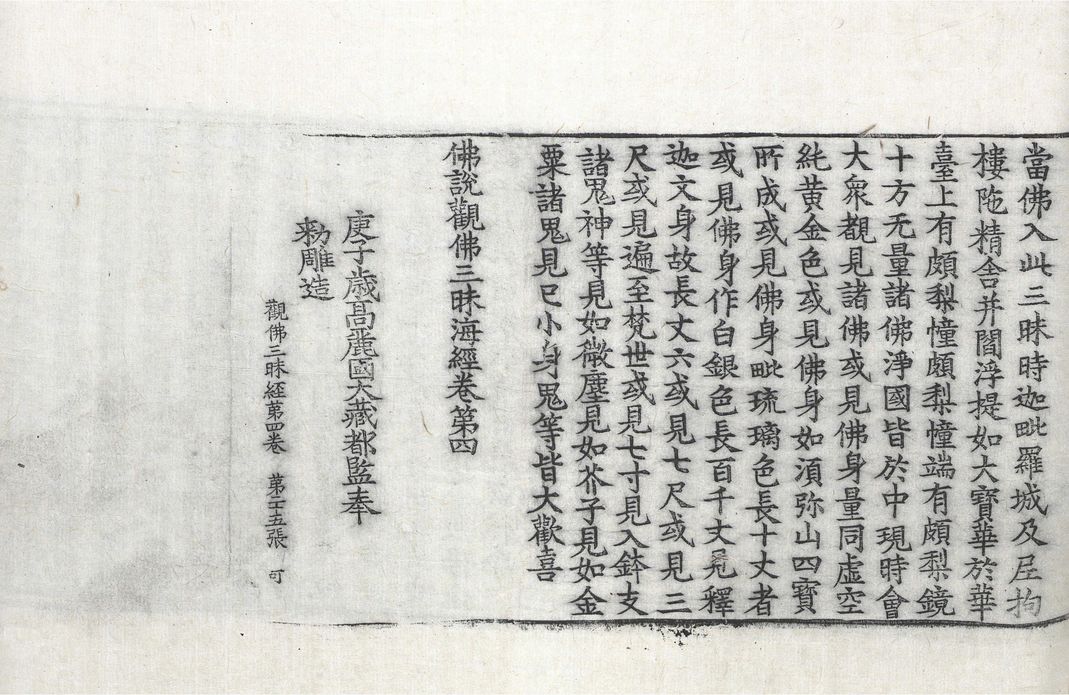 當佛入此三昧時迦毗羅城及尼拘
樓陁精舍并閻浮提如大寶華於華
臺上有頗梨幢頗梨幢端有頗梨鏡
十方无量諸佛淨國皆於中現時會
大衆覩見諸佛或見佛身量同虛空
純黃金色或見佛身如湏弥山四寶
所成或見佛身毗琉璃色長十丈者
或見佛身作白銀色長百千丈見釋
迦文身故長丈六或見七尺或見三
尺或見遍至梵世或見七寸見入鉢支
諸鬼神等見如微塵見如芥子見如金
粟諸鬼見已小身鬼等皆大歡喜
佛說觀佛三昧海經卷第四
庚子歲高麗國大藏都監奉
勑雕造
觀佛三昧経第四卷 第二十五張 可